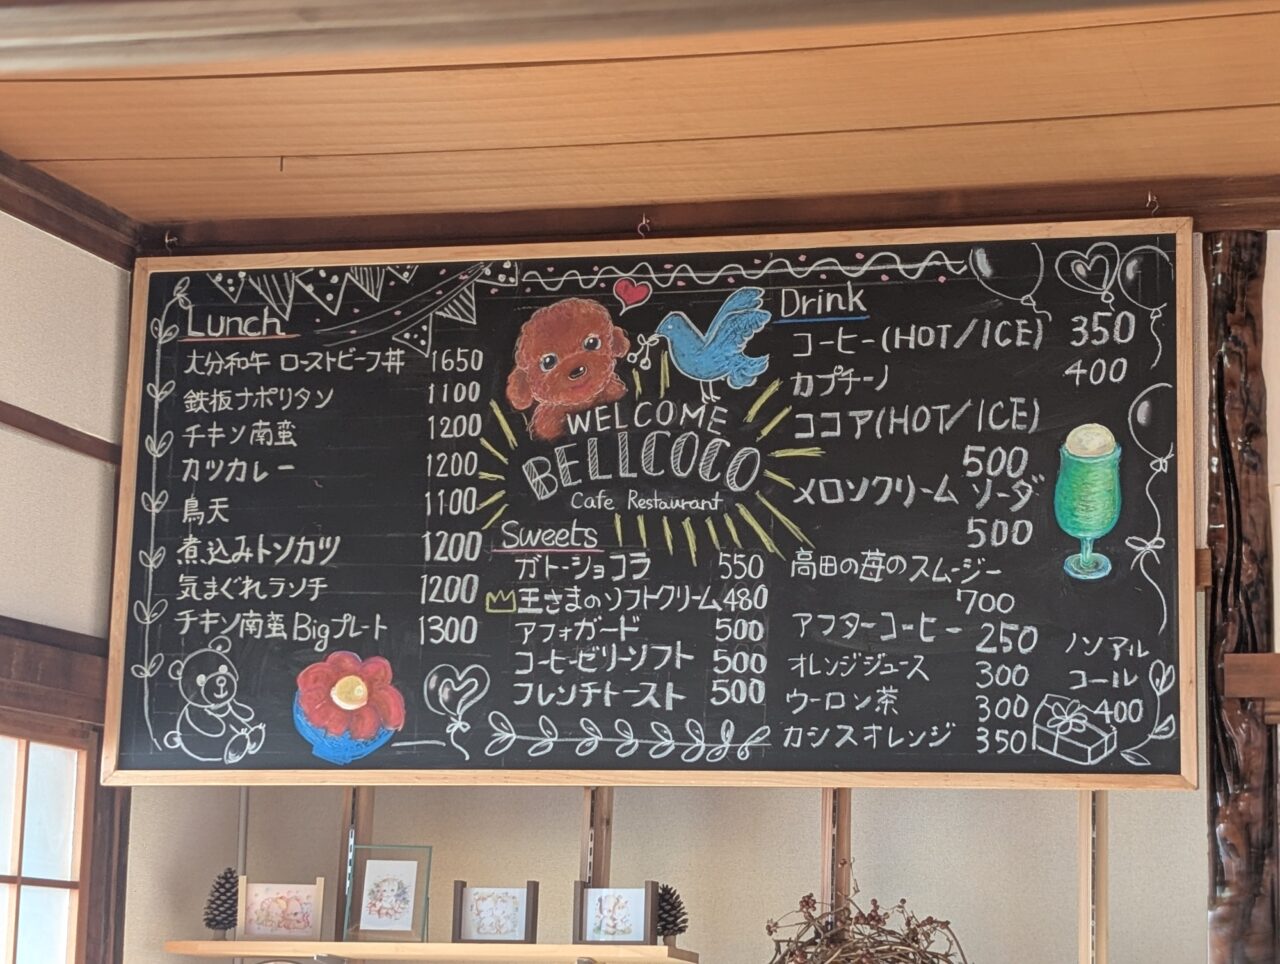 Lunch
大分和牛 ローストビーフ丼 1650
鉄板ナポリタン 1100
チキン南蛮 1200
カツカレー 1200
鳥天 1100
煮込みトンカツ 1200
気まぐれランチ 1200
チキン南蛮Bigプレート 1300
WELCOME
BELLCOCO
Cafe Restaurant
Sweets
ガトーショコラ 550
王さまのソフトクリーム 480
アフォガード 500
コーヒーゼリーソフト 500
フレンチトースト 500
Drink
コーヒー(HOT/ICE) 350
カプチーノ 400
ココア(HOT/ICE)
500
メロンクリームソーダ
500
高田の苺のスムージー
700
アフターコーヒー 250
オレンジジュース 300
ウーロン茶 300
カシスオレンジ 350
ノンアル
コール
400